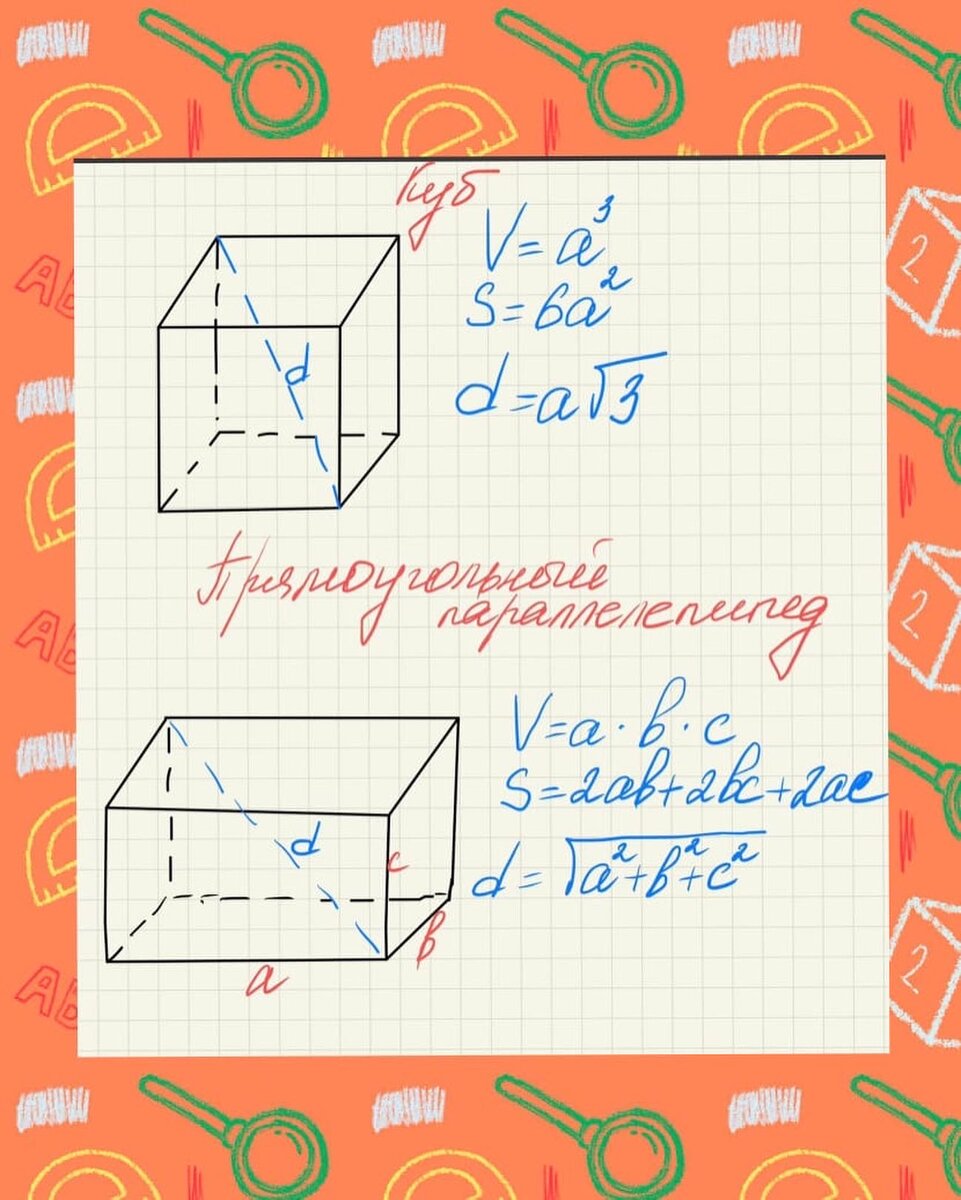 Куб
V = a³
S = 6a²
d
d = a√3
Прямоугольный
параллелепипед
V = a · b · c
S = 2ab + 2bc + 2ac
d
c
d = √a² + b² + c²
b
a
AB
AB
AB
2
2
2